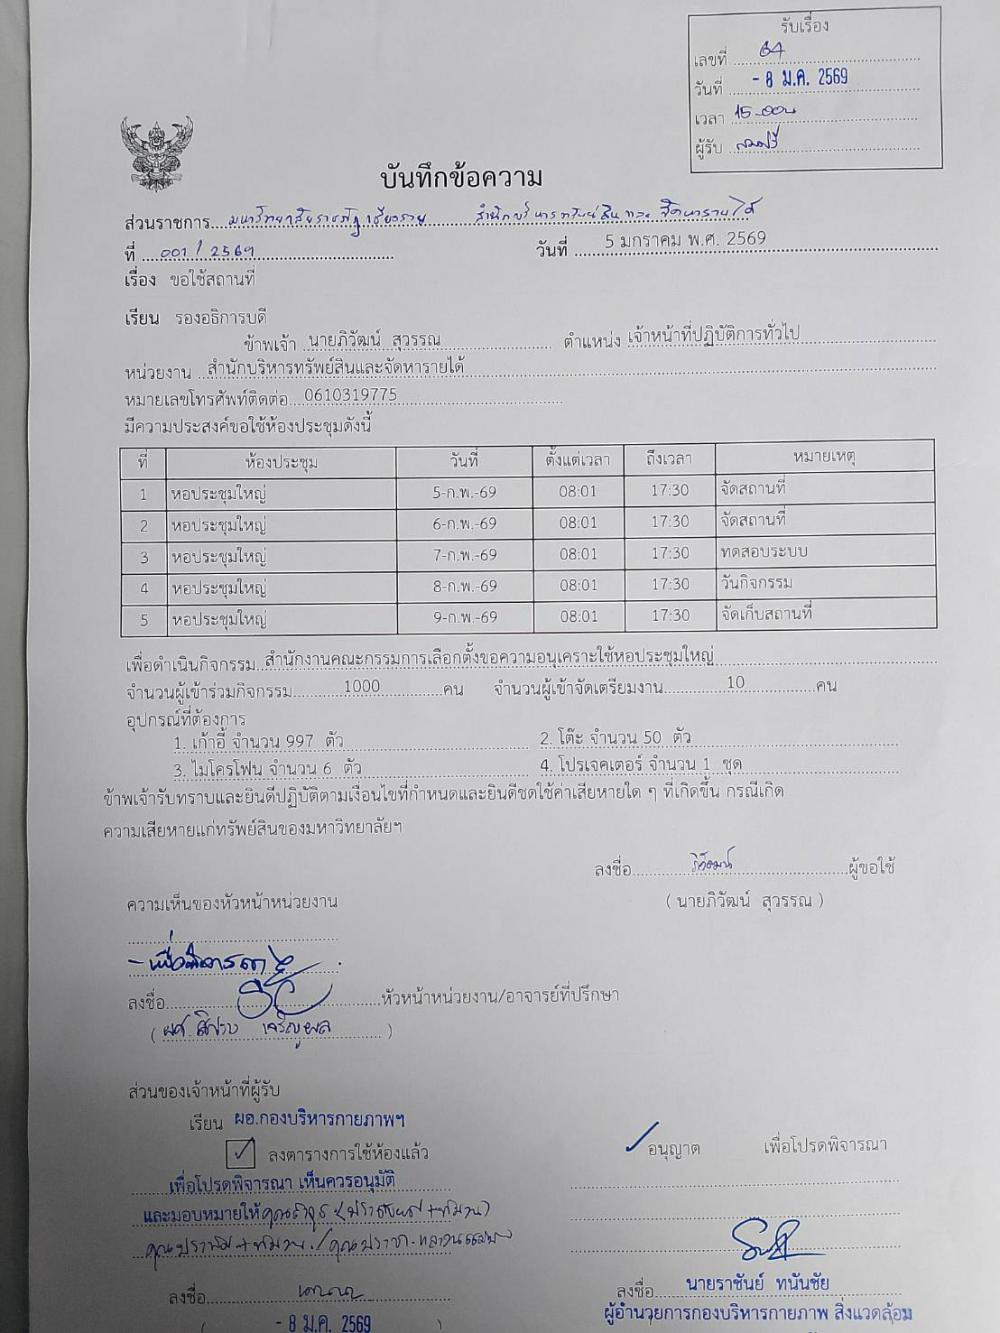 รับเรื่อง
เลขที่ 64
วันที่ - 8 ม.ค. 2569
เวลา 15.00น
ผู้รับ
บันทึกข้อความ
ส่วนราชการ มหาวิทยาลัยราชภัฏเชียงราย สำนักบริหารทรัพย์สินและจัดหารายได้
ที่ 001 / 2569 วันที่ 5 มกราคม พ.ศ. 2569
เรื่อง ขอใช้สถานที่
เรียน รองอธิการบดี
ข้าพเจ้า นายภิวัฒน์ สุวรรณ ตำแหน่ง เจ้าหน้าที่ปฏิบัติการทั่วไป
หน่วยงาน สำนักบริหารทรัพย์สินและจัดหารายได้
หมายเลขโทรศัพท์ติดต่อ 0610319775
มีความประสงค์ขอใช้ห้องประชุมดังนี้
ที่ ห้องประชุม วันที่ ตั้งแต่เวลา ถึงเวลา หมายเหตุ
1 หอประชุมใหญ่ 5-ก.พ.-69 08:01 17:30 จัดสถานที่
2 หอประชุมใหญ่ 6-ก.พ.-69 08:01 17:30 จัดสถานที่
3 หอประชุมใหญ่ 7-ก.พ.-69 08:01 17:30 ทดสอบระบบ
4 หอประชุมใหญ่ 8-ก.พ.-69 08:01 17:30 วันกิจกรรม
5 หอประชุมใหญ่ 9-ก.พ.-69 08:01 17:30 จัดเก็บสถานที่
เพื่อดำเนินกิจกรรม สำนักงานคณะกรรมการเลือกตั้งขอความอนุเคราะใช้หอประชุมใหญ่
จำนวนผู้เข้าร่วมกิจกรรม 1000 คน จำนวนผู้เข้าจัดเตรียมงาน 10 คน
อุปกรณ์ที่ต้องการ
1. เก้าอี้ จำนวน 997 ตัว 2. โต๊ะ จำนวน 50 ตัว
3. ไมโครโฟน จำนวน 6 ตัว 4. โปรเจคเตอร์ จำนวน 1 ชุด
ข้าพเจ้ารับทราบและยินดีปฏิบัติตามเงื่อนไขที่กำหนดและยินดีชดใช้ค่าเสียหายใด ๆ ที่เกิดขึ้น กรณีเกิด
ความเสียหายแก่ทรัพย์สินของมหาวิทยาลัยฯ
ลงชื่อ ภิวัฒน์ ผู้ขอใช้
( นายภิวัฒน์ สุวรรณ )
ความเห็นของหัวหน้าหน่วยงาน
- เพื่อพิจารณา
ลงชื่อ หัวหน้าหน่วยงาน/อาจารย์ที่ปรึกษา
( ผศ. เจริญผล )
ส่วนของเจ้าหน้าที่ผู้รับ
เรียน ผอ.กองบริหารกายภาพฯ
✓ ลงตารางการใช้ห้องแล้ว
✓ อนุญาต เพื่อโปรดพิจารณา
เพื่อโปรดพิจารณา เห็นควรอนุมัติ
และมอบหมายให้
ลงชื่อ
- 8 ม.ค. 2569
ลงชื่อ นายราชันย์ ทนันชัย
ผู้อำนวยการกองบริหารกายภาพ สิ่งแวดล้อม